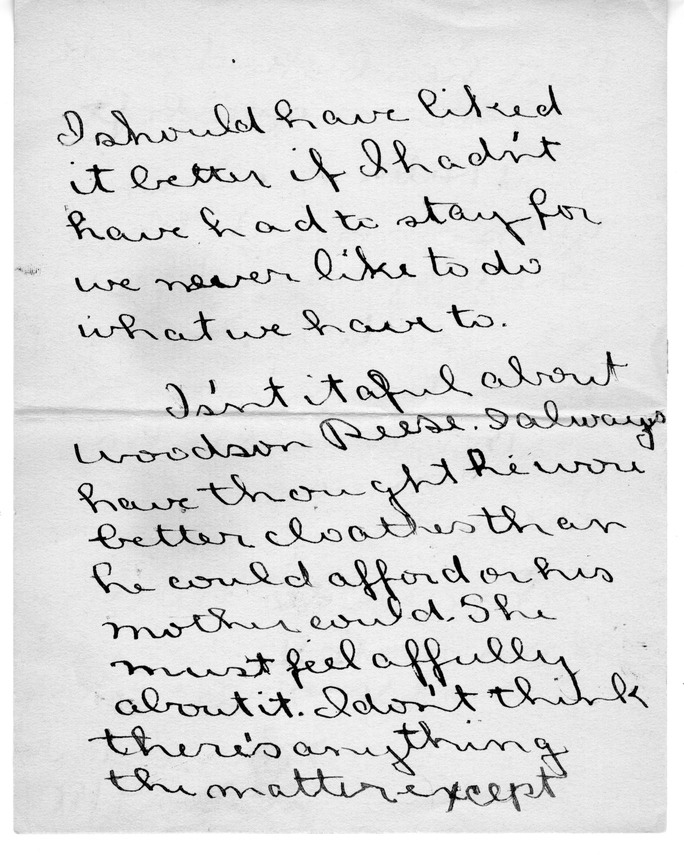 I should have liked
it better if I hadn't
have had to stay for
we never like to do
what we have to.
Is'nt it aful about
Woodson Reese. I always
have thought he wore
better cloathes than
he could afford or his
mother could. She
must feel affully
about it. I don't think
there's anything
the matter except